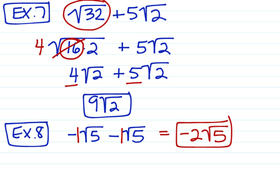 EX.7 √32 + 5√2
4 √16 2 + 5√2
4√2 + 5√2
9√2
EX.8 -1√5 - 1√5 = -2√5